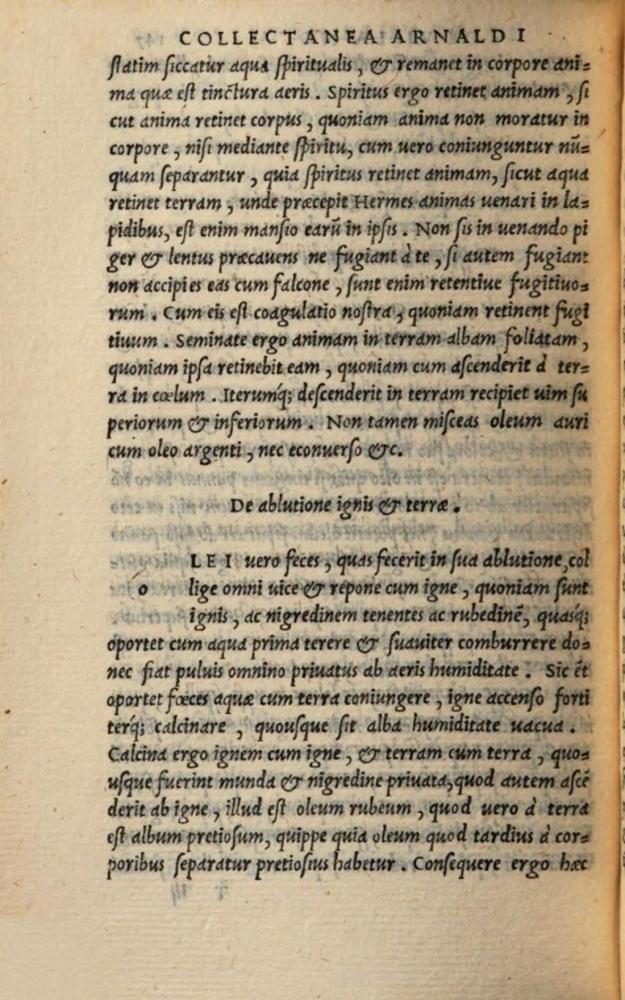 COLLECTANEA ARNALDI
statim siccatur aqua spiritualis, & remanet in corpore ani=
ma quæ est tinctura aeris. Spiritus ergo retinet animam, si
cut anima retinet corpus, quoniam anima non moratur in
corpore, nisi mediante spiritu, cum uero coniunguntur nū=
quam separantur, quia spiritus retinet animam, sicut aqua
retinet terram, unde præcepit Hermes animas uenari in la=
pidibus, est enim mansio earū in ipsis. Non sis in uenando pi
ger & lentus præcauens ne fugiant à te, si autem fugiant
non accipies eas cum falcone, sunt enim retentiue fugitiuo=
rum. Cum eis est coagulatio nostra, quoniam retinent fugi
tiuum. Seminate ergo animam in terram albam foliatam,
quoniam ipsa retinebit eam, quoniam cum ascenderit à ter=
ra in cœlum. Iterumq́; descenderit in terram recipiet uim su
periorum & inferiorum. Non tamen misceas oleum auri
cum oleo argenti, nec econuerso &c.
De ablutione ignis & terræ.
LEI uero feces, quas fecerit in sua ablutione, col
o lige omni uice & repone cum igne, quoniam sunt
ignis, ac nigredinem tenentes ac rubedinē, quasq́;
oportet cum aqua prima terere & suauiter comburrere do=
nec fiat puluis omnino priuatus ab aeris humiditate. Sic ēt
oportet fœces aquæ cum terra coniungere, igne accenso forti
terq́; calcinare, quousque sit alba humiditate uacua.
Calcina ergo ignem cum igne, & terram cum terra, quo=
usque fuerint munda & nigredine priuata, quod autem ascē
derit ab igne, illud est oleum rubeum, quod uero à terra
est album pretiosum, quippe quia oleum quod tardius à cor=
poribus separatur pretiosius habetur. Consequere ergo hæc